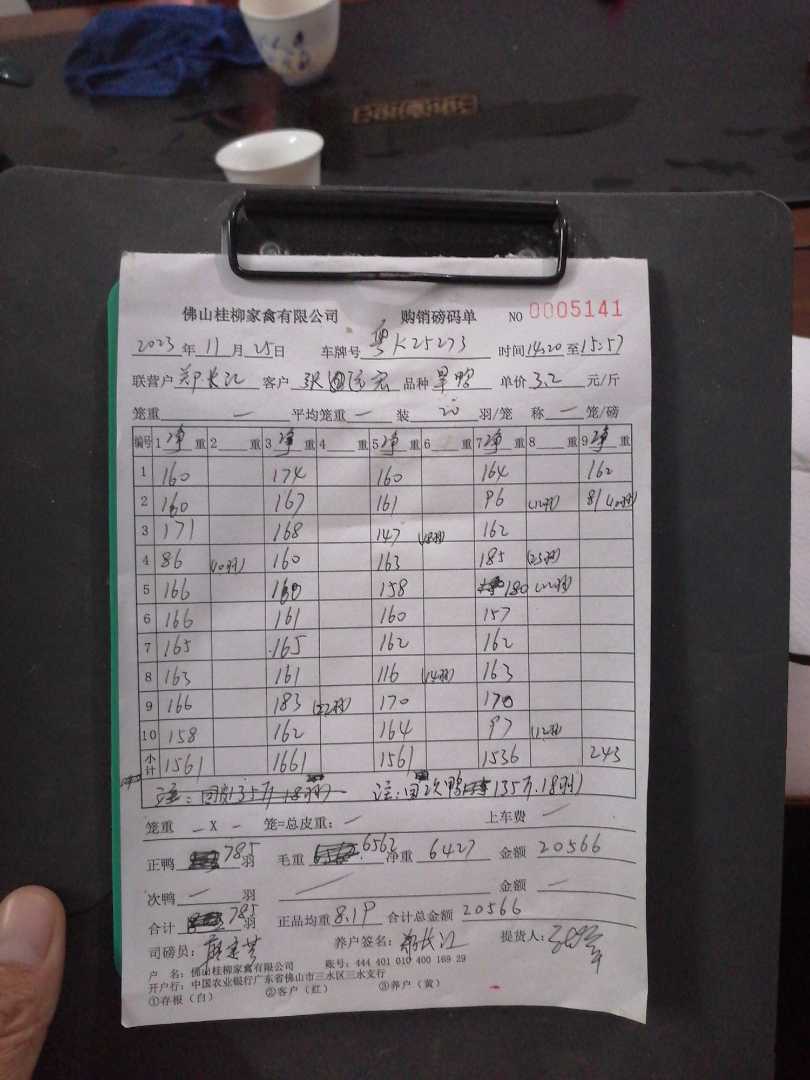 佛山桂柳家禽有限公司 购销磅码单 NO 0005141
2023 年 11 月 25 日 车牌号 粤K25273 时间 14:20 至 15:57
联营户 郑长江 客户 张 宏 品种 旱鸭 单价 3.2 元/斤
笼重 — 平均笼重 — 装 20 羽/笼 称 — 笼/磅
编号 1 净 重 2 重 3 净 重 4 重 5 净 重 6 重 7 净 重 8 重 9 净 重
1 160 174 160 164 162
2 160 167 161 96 (12羽) 81 (10羽)
3 171 168 147 (18羽) 162
4 86 (10羽) 160 163 185 (23羽)
5 166 160 158 180 (22羽)
6 166 161 160 157
7 165 165 162 162
8 163 161 116 (14羽) 163
9 166 183 (22羽) 170 170
10 158 162 164 97 (12羽)
小计 1561 1661 1561 1536 243
注: 135斤 18羽) 注:回次鸭 135斤.18羽)
笼重 — X — 笼=总皮重: — 上车费 —
正鸭 785 羽 毛重 6562 净重 6427 金额 20566
次鸭 — 羽 — 金额 —
合计 785 羽 正品均重 8.19 合计总金额 20566
司磅员: 养户签名: 郑长江 提货人:
户 名: 佛山桂柳家禽有限公司 账号: 444 401 010 400 169 29
开户行: 中国农业银行广东省佛山市三水区三水支行
①存根 (白) ②客户 (红) ③养户 (黄)